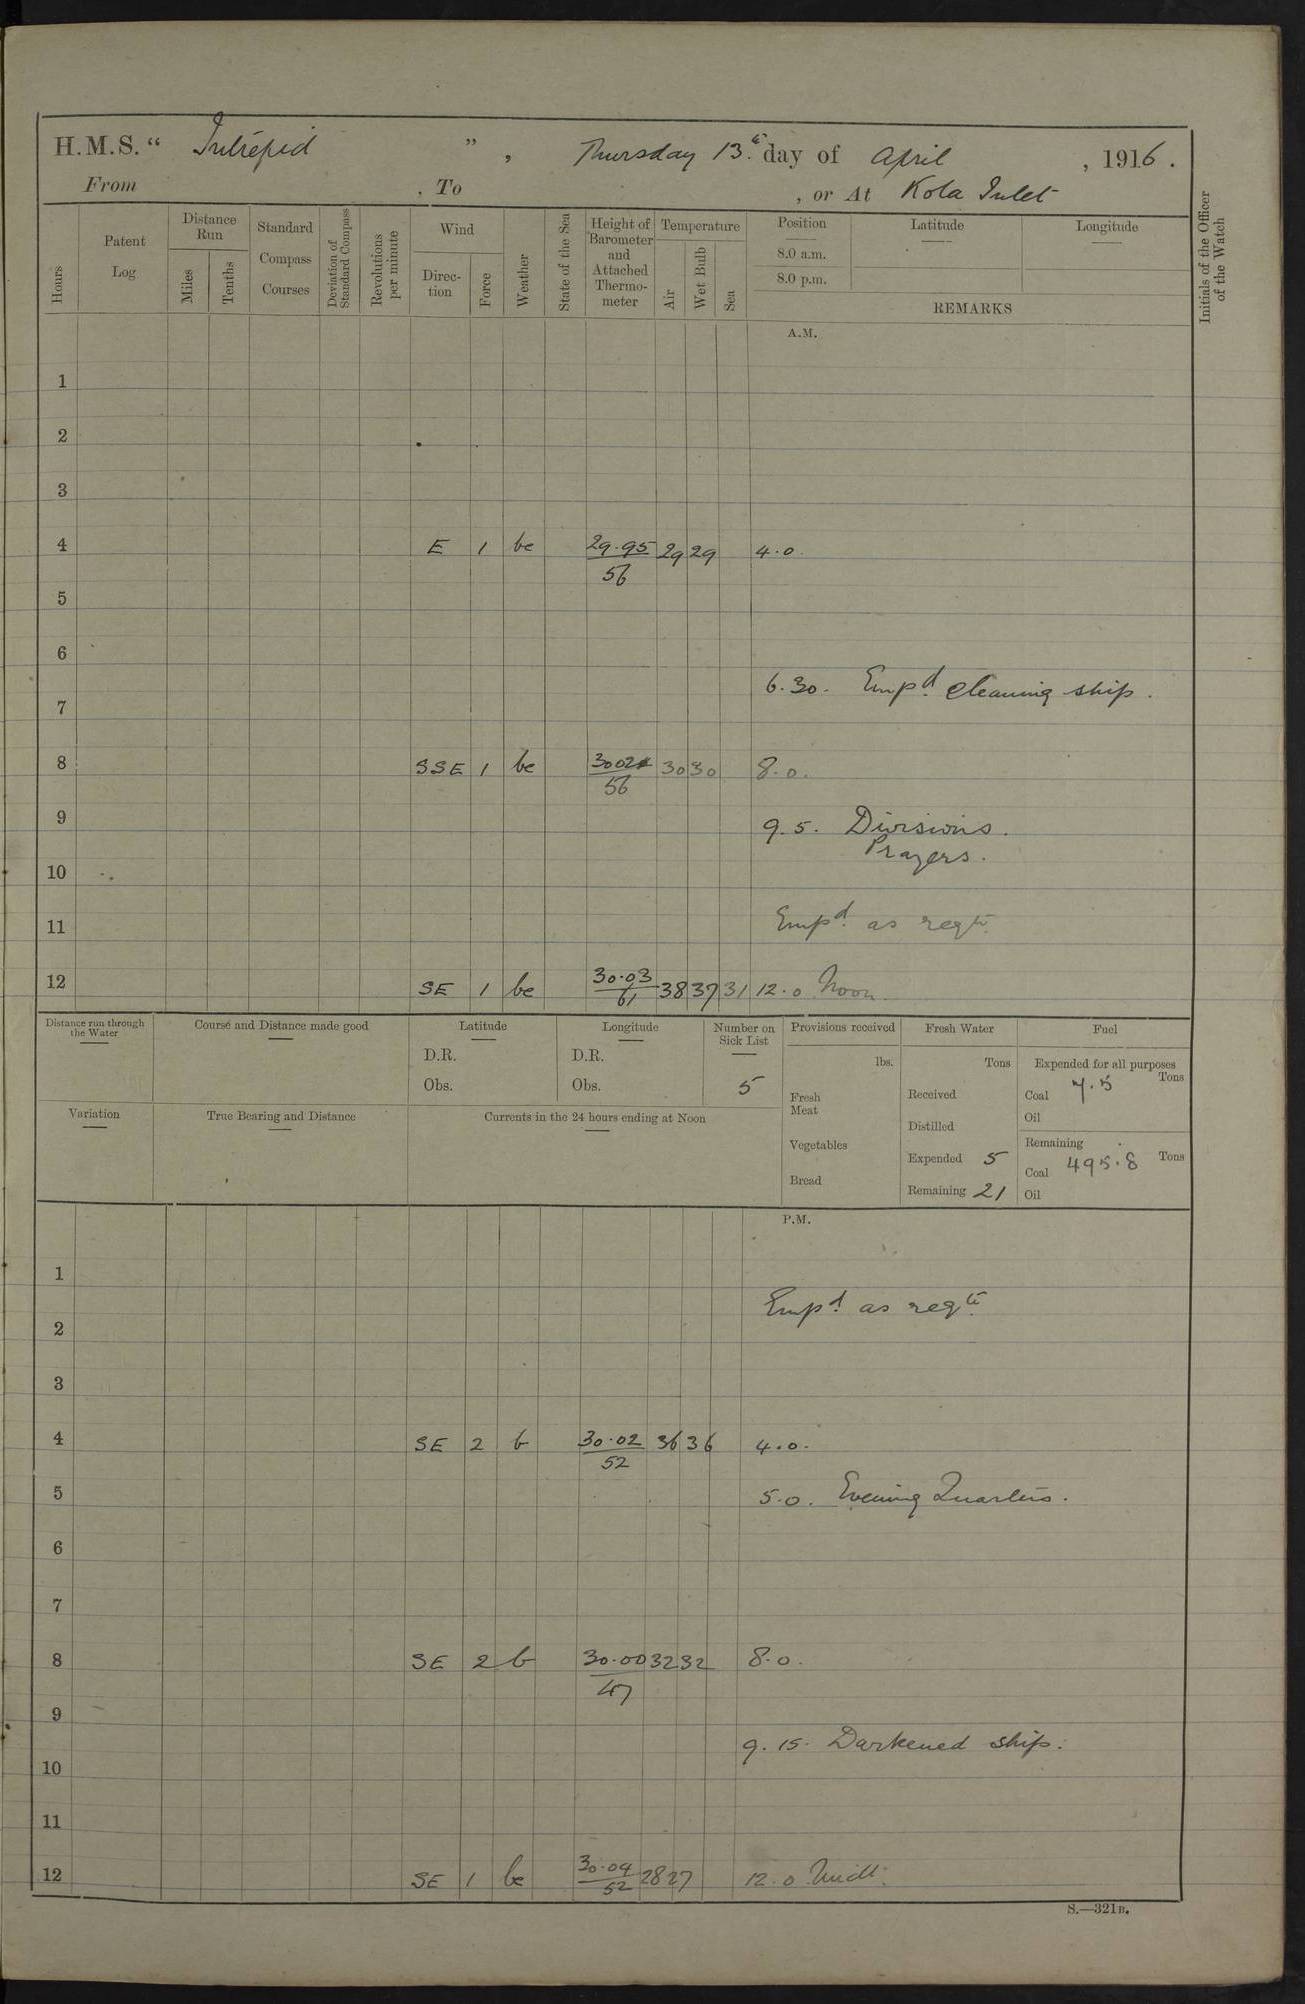 H.M.S. “ Intrepid ” , Thursday 13.th day of April , 1916 .
From , To , or At Kola Inlet
Hours
Patent Log
Distance Run
Miles
Tenths
Standard Compass Courses
Deviation of Standard Compass
Revolutions per minute
Wind
Direction
Force
Weather
State of the Sea
Height of Barometer and Attached Thermometer
Temperature
Air
Wet Bulb
Sea
Position
8.0 a.m.
8.0 p.m.
Latitude
Longitude
REMARKS
Initials of the Officer of the Watch
A.M.
1
2
3
4 E 1 bc 29.95 29 29 4.0
56
5
6
6.30. Empd. cleaning ship.
7
8 SSE 1 bc 3002 30 30 8.0.
56
9
9.5. Divisions.
Prayers.
10
11 Empd. as reqte.
12 SE 1 bc 30.03 38 37 31 12.0 Noon
61
Distance run through the Water
Course and Distance made good
Latitude
D.R.
Obs.
Longitude
D.R.
Obs.
Number on Sick List
5
Provisions received
lbs.
Fresh Meat
Vegetables
Bread
Fresh Water
Tons
Received
Distilled
Expended 5
Remaining 21
Fuel
Expended for all purposes
Coal 7.5 Tons
Oil
Remaining
Coal 495.8 Tons
Oil
Variation
True Bearing and Distance
Currents in the 24 hours ending at Noon
P.M.
1
Empd. as reqte.
2
3
4 SE 2 b 30.02 36 36 4.0.
52
5 5.0. Evening Quarters.
6
7
8 SE 2 b 30.00 32 32 8.0.
47
9
9.15. Darkened ship.
10
11
12 SE 1 bc 30.04 28 27 12.0 Midt.
52
S.—321B.